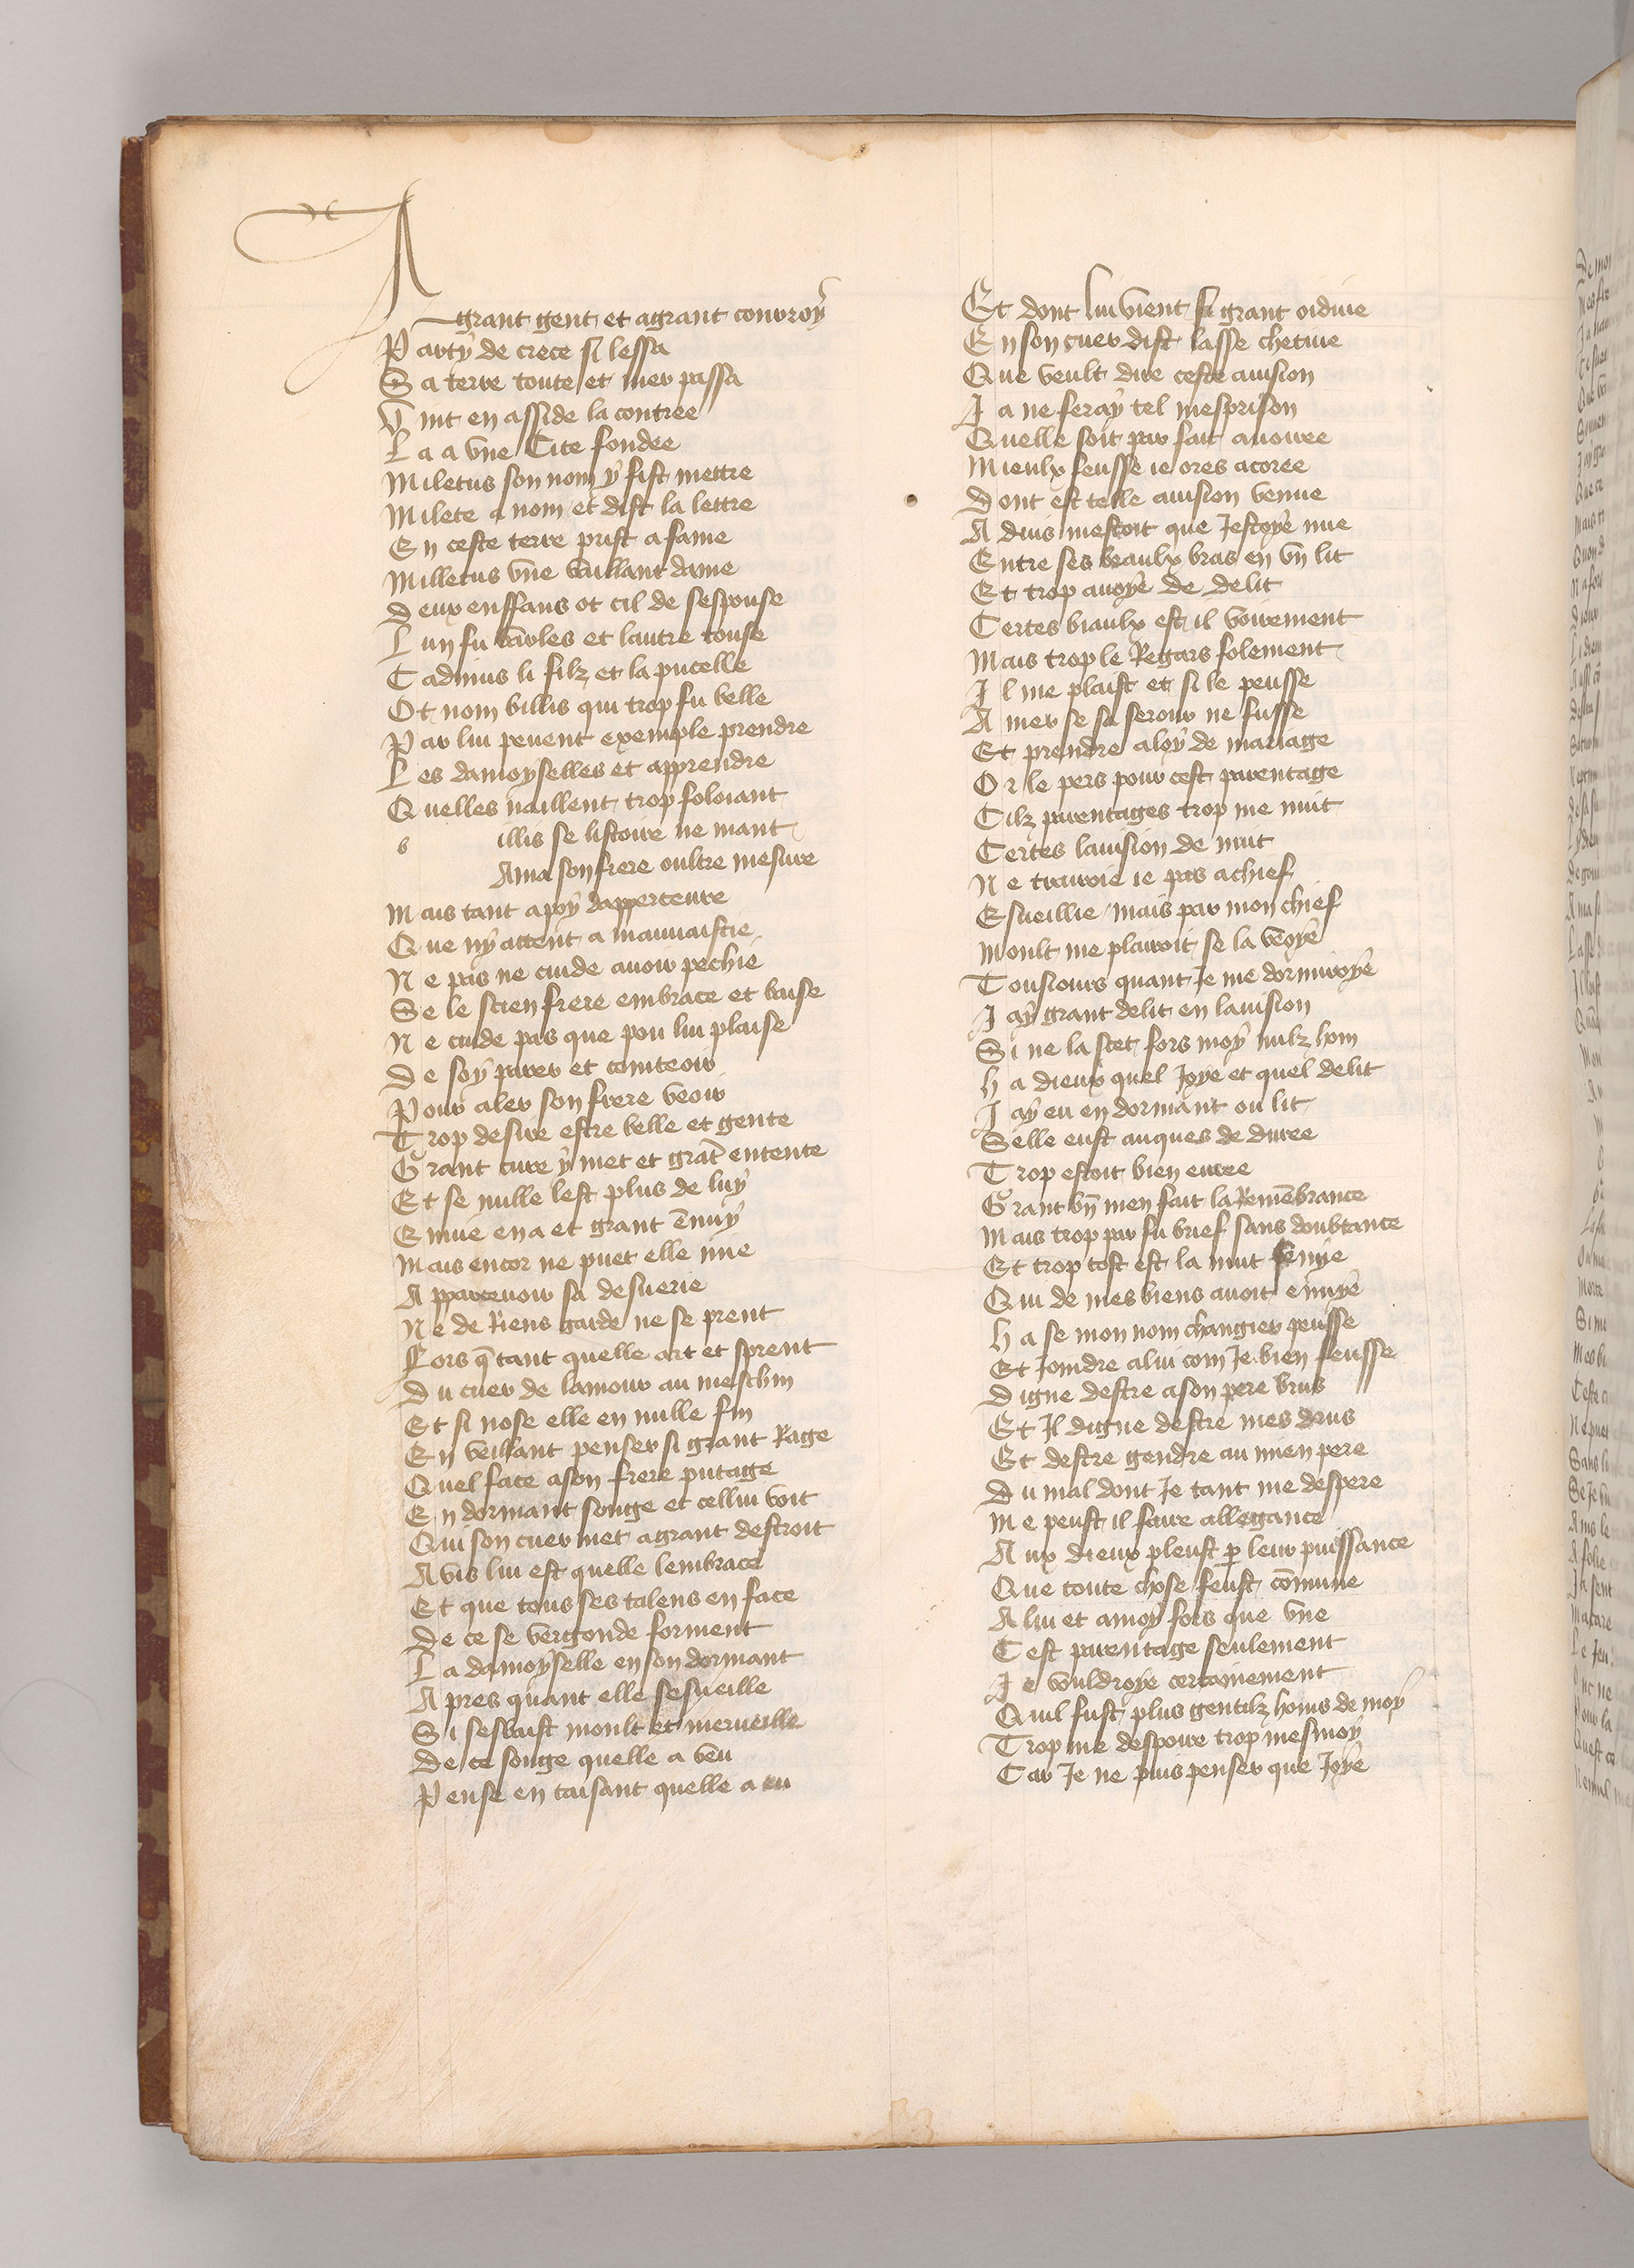 A grant gent et agrant conuroy
Party de crece si lessa
Sa terre toute et mer passa
Vint en asside la contree
La a vne Cite fondee
Miletus son nom y fist mettre
Milete a nom et dist la lettre
En ceste terre prist a fame
Milletus vne vaillant dame
Deux enffans ot cil de sespouse
Lun fu varles et lautre touse
Cadmus li filz et la pucelle
Ot nom billis qui trop fu belle
Par lui peuent exemple prendre
Les damoyselles et apprendre
Quelles naillent trop foloiant
b illis se listoire ne mant
Ama son frere oultre mesure
Mais tant apoy dapperteure
Que ny attent a mauuaistie
Ne pas ne cuide auoir pechie
Se le scien frere embrace et baise
Ne cuide pas que pou lui plaise
De soy parer et comteoir
Pour aler son frere veoir
Trop desire estre belle et gente
Grant cure y met et grāt entente
Et se nulle lest plus de luy
Enuie en a et grant ēnuy
Mais encor ne puet elle mie
Apparceuoir sa desuerie
Ne de Riens garde ne se prent
Fors q̄ tant quelle art et sprent
Du cuer de lamour au meschin
Et si nose elle en nulle fin
En veillant penser si grant Rage
Quel face ason frere putage
En dormant songe et cellui voit
Qui son cuer met agrant destroit
Avis lui est quelle lembrace
Et que tous ses talens en face
De ce se vergonde forment
La damoyselle en son dormant
Apres quant elle sesueille
Si sesbaist moult et merueille
De ce songe quelle a veu
Pense en taisant quelle a eu
Et dont lui vient si grant oidiue
En son cuer dist lasse chetiue
Que veult dire ceste auision
Ja ne feray tel mesprison
Quelle soit par fait auouee
Mieulx feusse ie ores acoree
Dont est telle auision venue
A duis mestoit que Jestoye nue
Entre ses beaulx bras en vn lit
Et trop auoye de delit
Certes biaulx est il voirement
Mais trop le Regars folement
Il me plaist et si le peusse
Amer se sa serour ne fusse
Et prendre aloy de mariage
Or le pers pour cest parentage
Cilz parentages trop me nuit
Certes lauision de nuit
Ne trairoie ie pas achief
Esueillie / mais par mon chief
Moult me plairoit se la veoye
Tousiours quant Je me dormiroye
Jay grant delit en lauision
Si ne la scet fors moy nulz hom
ha dieux quel Joye et quel delit
Jay eu en dormant ou lit
Selle eust auques de duree
Trop estoit bien euree
Grant bn̄ men fait la Remēbrance
Mais trop par fu brief sans doubtance
Et trop tost est la nuit fenye
Qui de mes biens auoit enuye
ha se mon nom changier peusse
Et Joindre alui com Je bien feusse
Digne destre ason pere brus
Et Il digne destre mes drus
Et destre gendre au mien pere
Du mal dont Je tant me despere
Me peust il faire allegance
Aux dieux pleust p̱ leur puissance
Que toute chose feust cōmune
Alui et amoy fors que vne
Cest parentage seulement
Je vouldroye certainement
Quil fust plus gentilz homs de moy
Trop me despoire trop mesmoy
Car Je ne puis penser que Joye